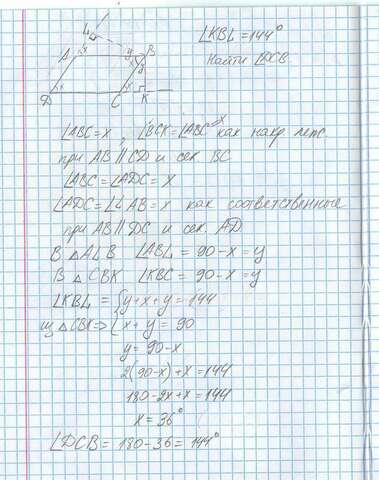 ∠KBL = 144°
Найти ∠DCB
L
A x B
y
x
y
D C K
∠ABC = x, ∠BCK = ∠ABC = x как накр. леж.
при AB || CD и сек BC
∠ABC = ∠ADC = x
∠ADC = ∠LAB = x как соответственные
при AB || DC и сек. AD
В △ALB ∠ABL = 90 - x = y
В △CBK ∠KBC = 90 - x = y
∠KBL = { y + x + y = 144
из △CBK => { x + y = 90
y = 90 - x
2(90 - x) + x = 144
180 - 2x + x = 144
x = 36°
∠DCB = 180 - 36 = 144°